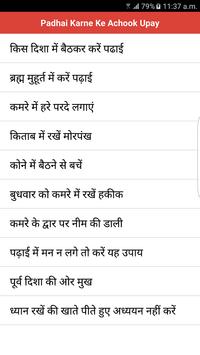 79% 11:37 a.m.
Padhai Karne Ke Achook Upay
किस दिशा में बैठकर करें पढाई
ब्रह्म मुहूर्त में करें पढ़ाई
कमरे में हरे परदे लगाएं
किताब में रखें मोरपंख
कोने में बैठने से बचें
बुधवार को कमरे में रखें हकीक
कमरे के द्वार पर नीम की डाली
पढ़ाई में मन न लगे तो करें यह उपाय
पूर्व दिशा की ओर मुख
ध्यान रखें की खाते पीते हुए अध्ययन नहीं करें